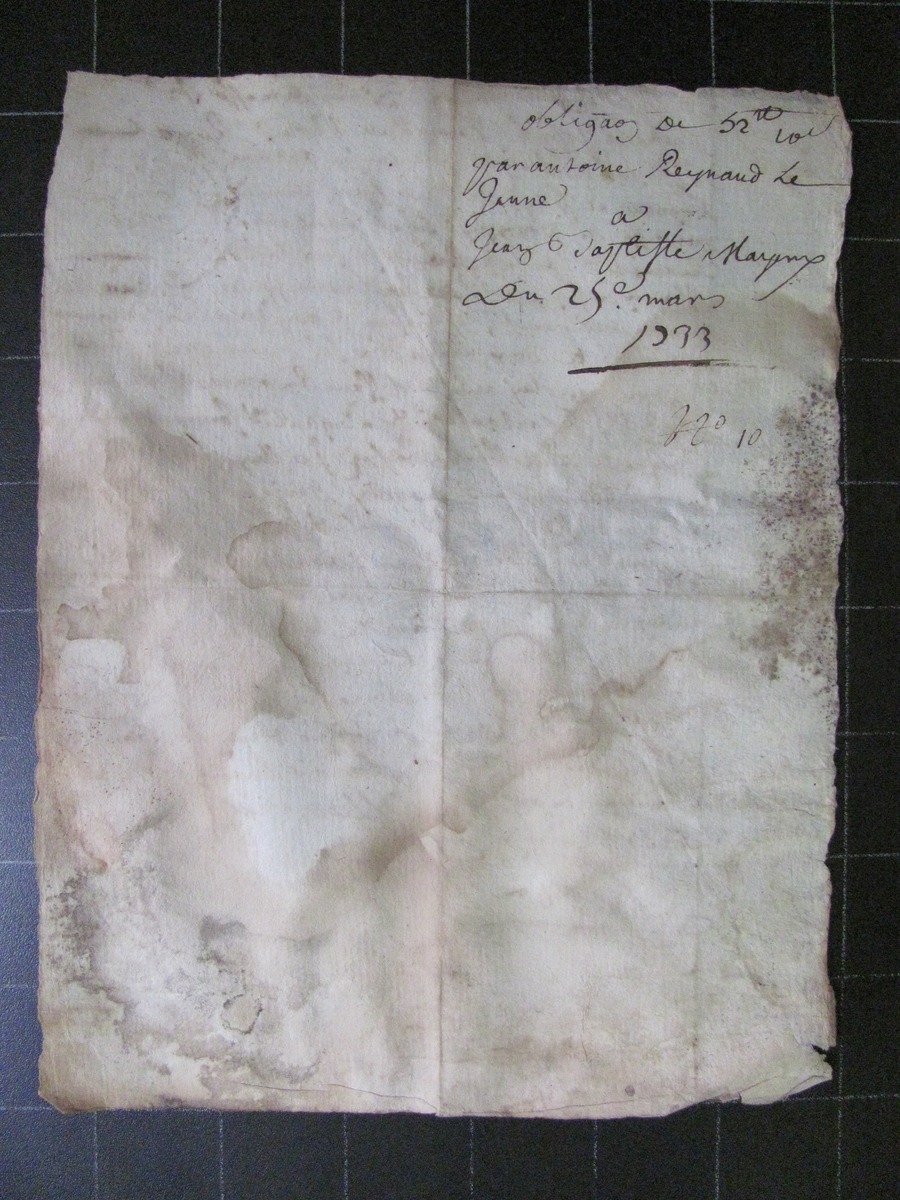 obligaõn de 52tt 10s
par antoine Reynaud Le
Jeune
a
Jean Baptiste
Du 25e. mars
1733
10